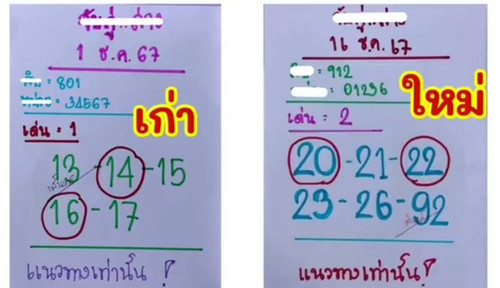 1 ธ.ค. 67
: 801
: 34567
เด่น = 1
เก่า
13 - 14 - 15
16 - 17
แนวทางเท่านั้น !
16 ธ.ค. 67
: 912
: 01236
ใหม่
เด่น = 2
20 - 21 - 22
23 - 26 - 92
แนวทางเท่านั้น !